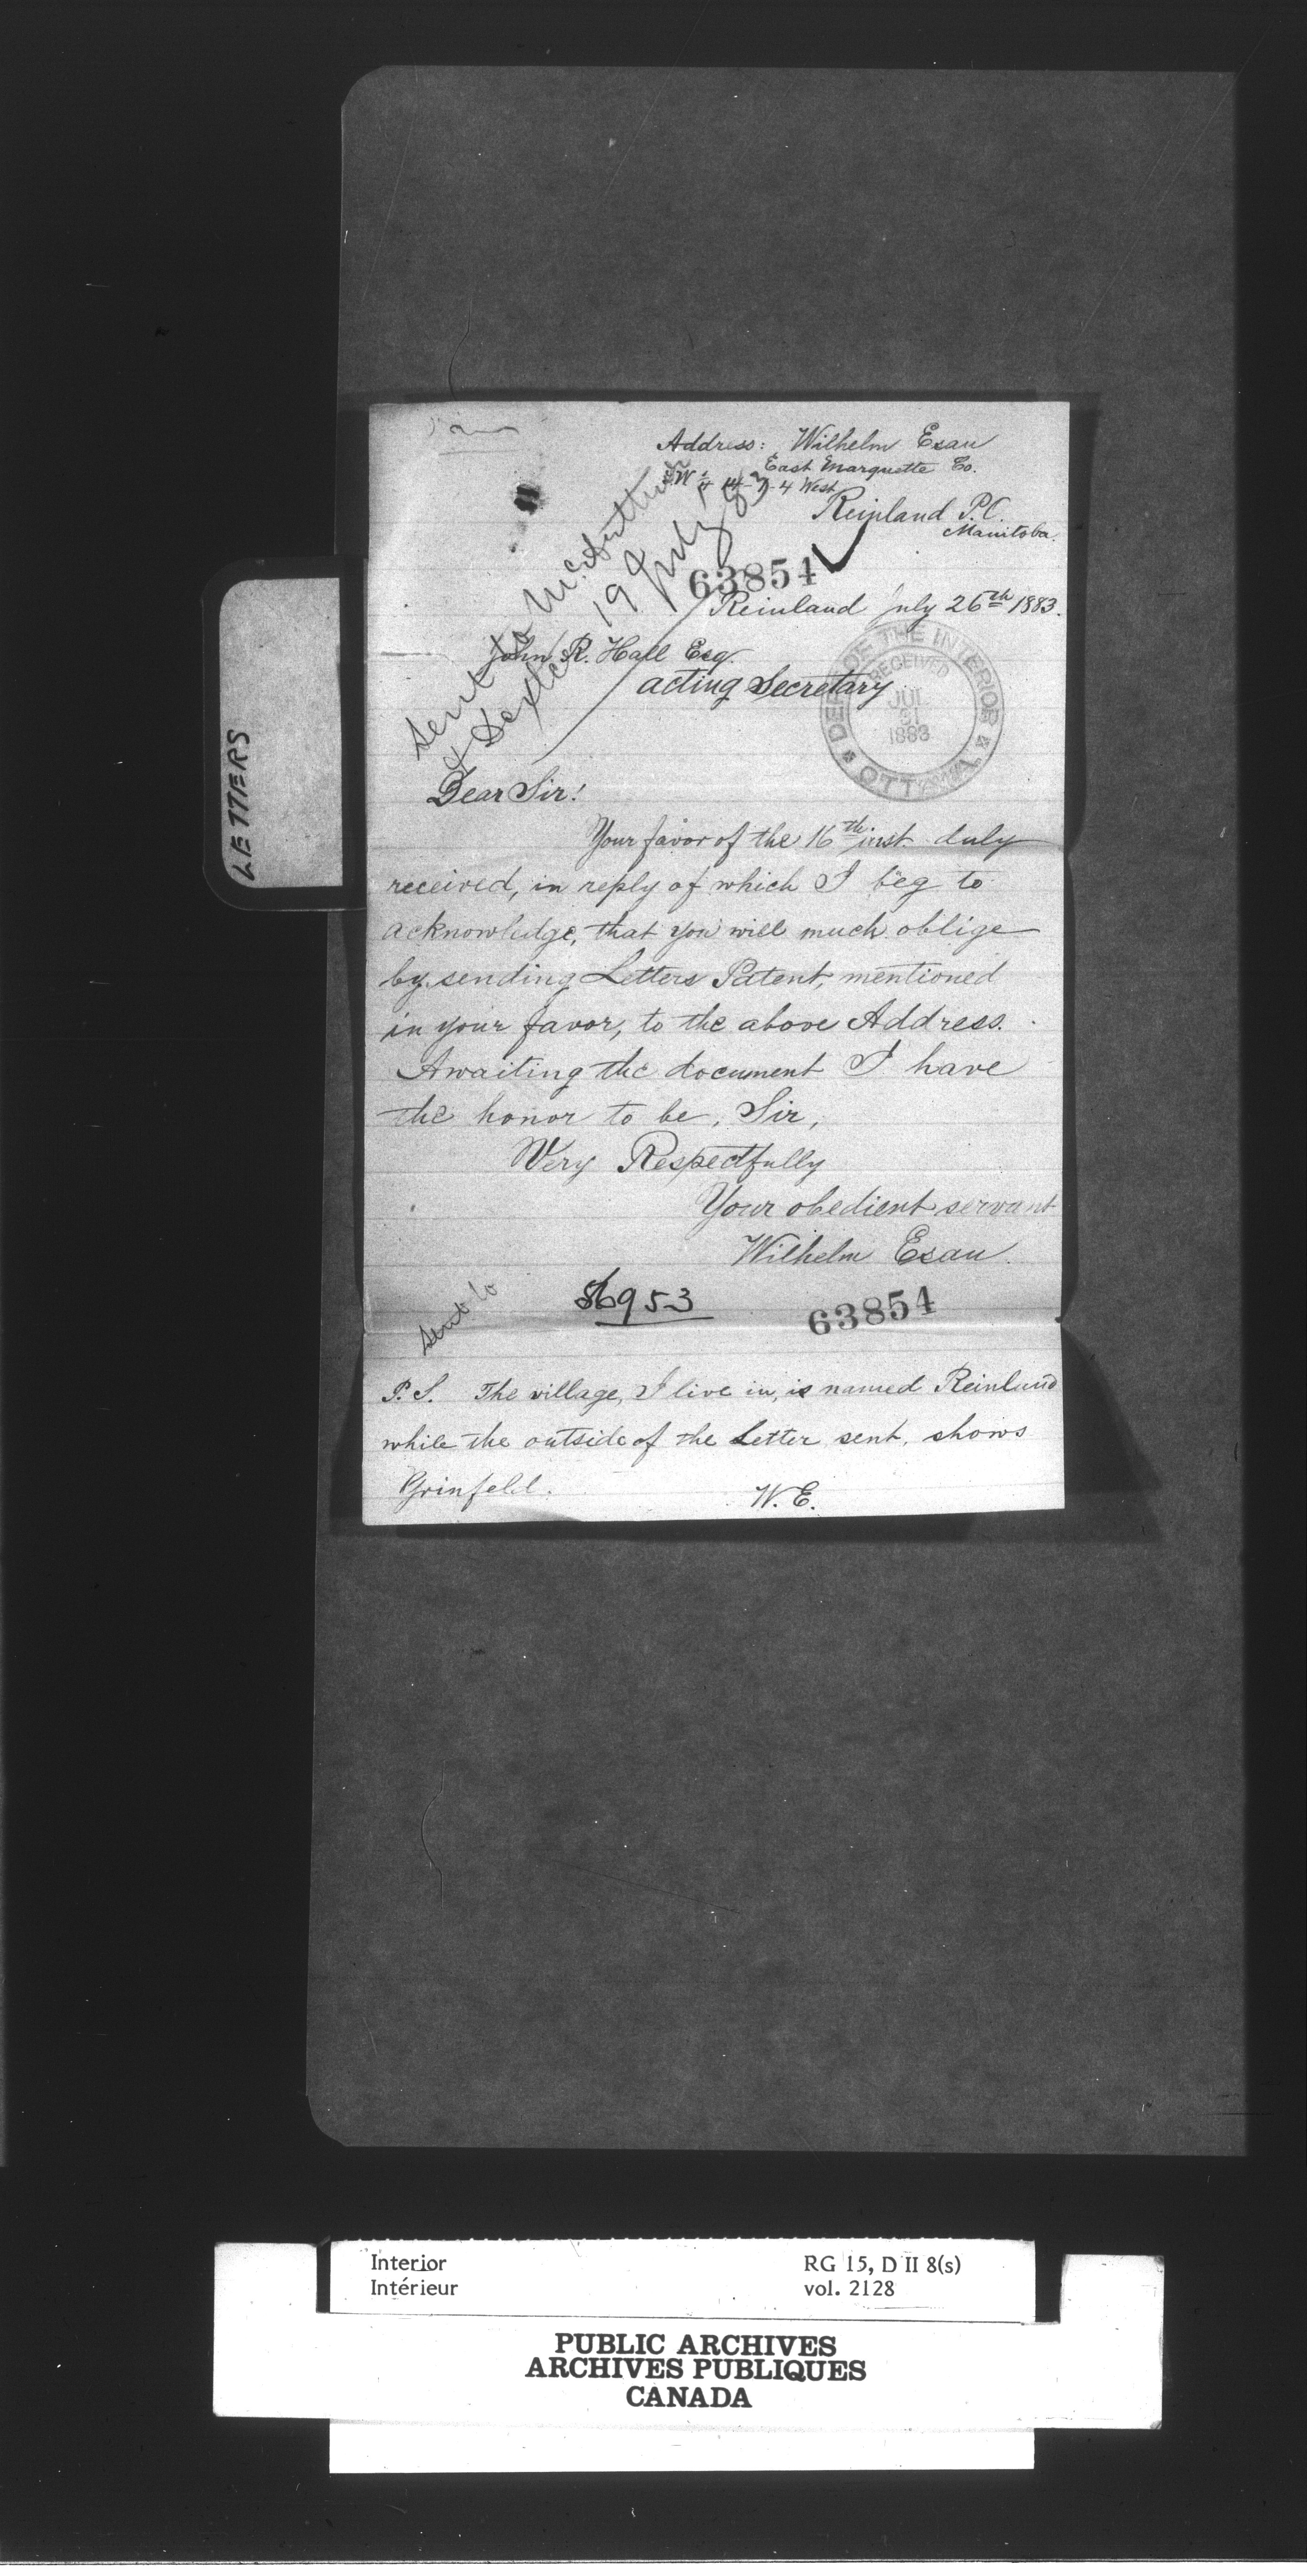 Address: Wilhelm Esau
East Marquette Co.
SW ¼ 14-1-4 West
Reinland P.O.
Manitoba.
63854
Reinland July 26th 1883.
sent to McArthur
& Dexter 19 July 83
John R. Hall Esq.
acting Secretary
DEPT OF THE INTERIOR
RECEIVED
JUL
31
1883
OTTAWA
LETTERS
Dear Sir!
Your favor of the 16th inst duly
received, in reply of which I beg to
acknowledge, that you will much oblige
by sending Letters Patent, mentioned
in your favor, to the above Address.
Awaiting the document I have
the honor to be, Sir,
Very Respectfully
Your obedient servant
Wilhelm Esau.
sent to
953
63854
P.S. The village, I live in, is named Reinland
while the outside of the Letter sent, shows
Grinfeld.
W. E.
Interior
Intérieur
RG 15, D II 8(s)
vol. 2128
PUBLIC ARCHIVES
ARCHIVES PUBLIQUES
CANADA